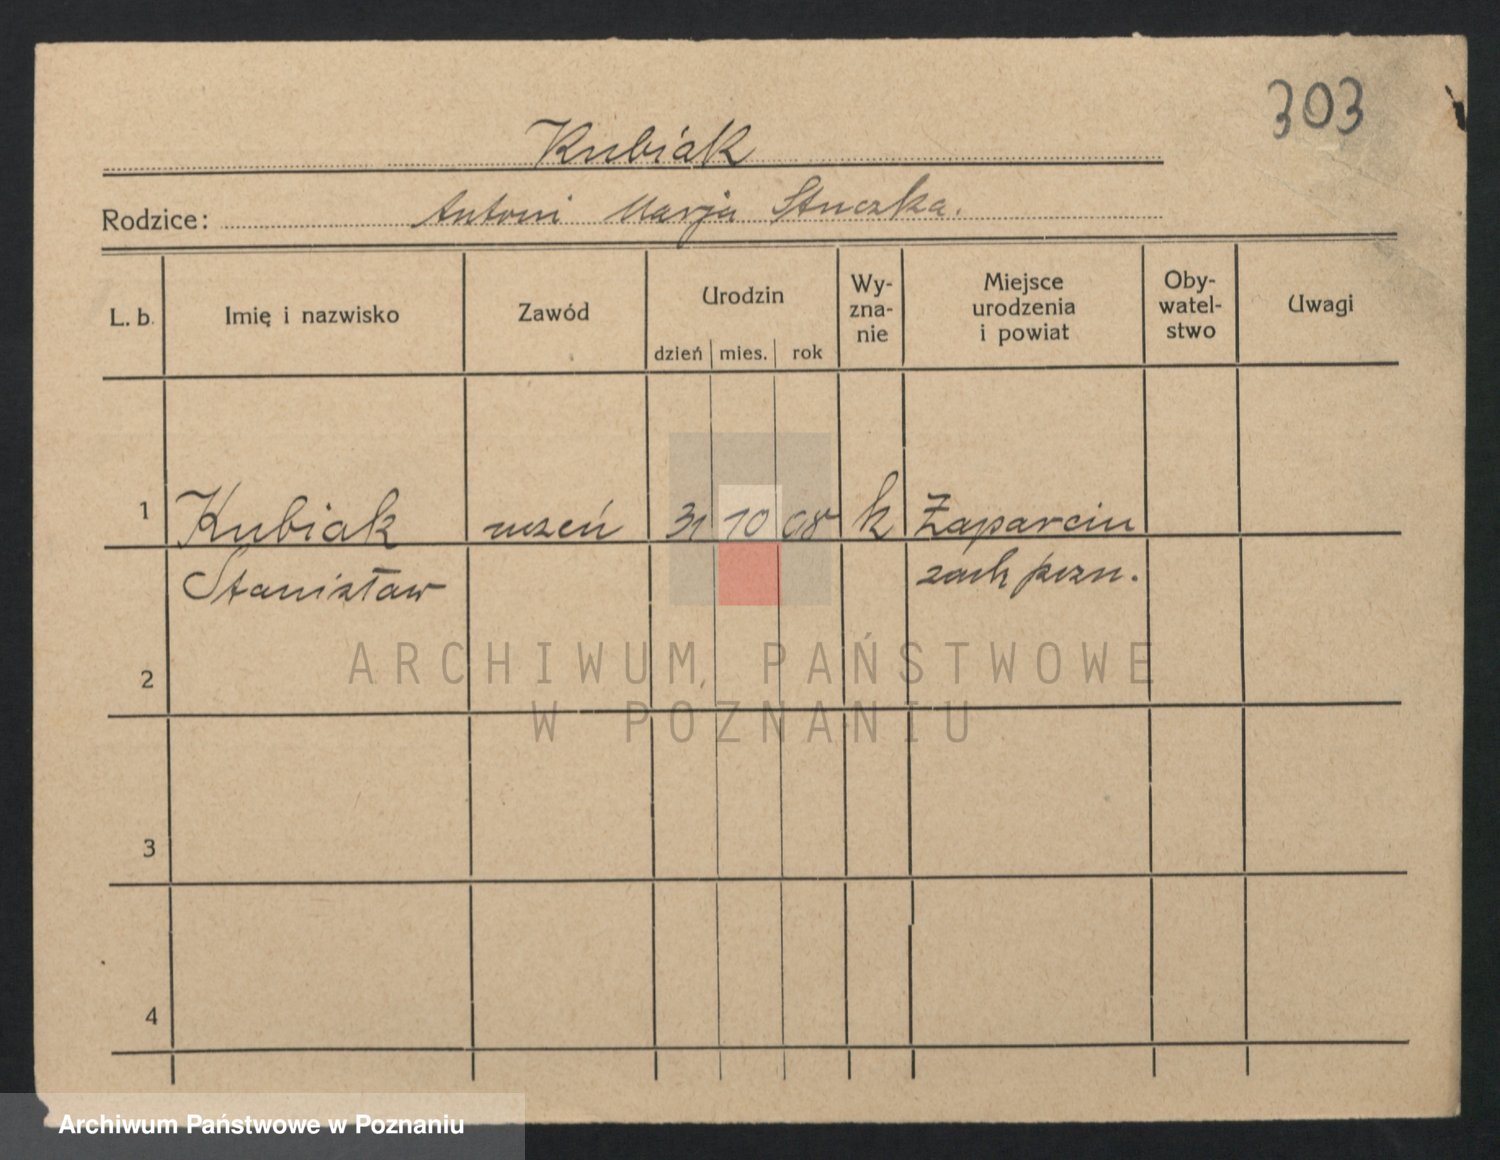 303
Kubiak
Rodzice: Antoni Marja Stuczka.
L. b. Imię i nazwisko Zawód Urodzin dzień mies. rok Wy-zna-nie Miejsce urodzenia i powiat Oby-watel-stwo Uwagi
1 Kubiak uczeń 31 10 08 k Zaparcin
Stanisław zach pozn.
2
3
4
ARCHIWUM PAŃSTWOWE
W POZNANIU
Archiwum Państwowe w Poznaniu